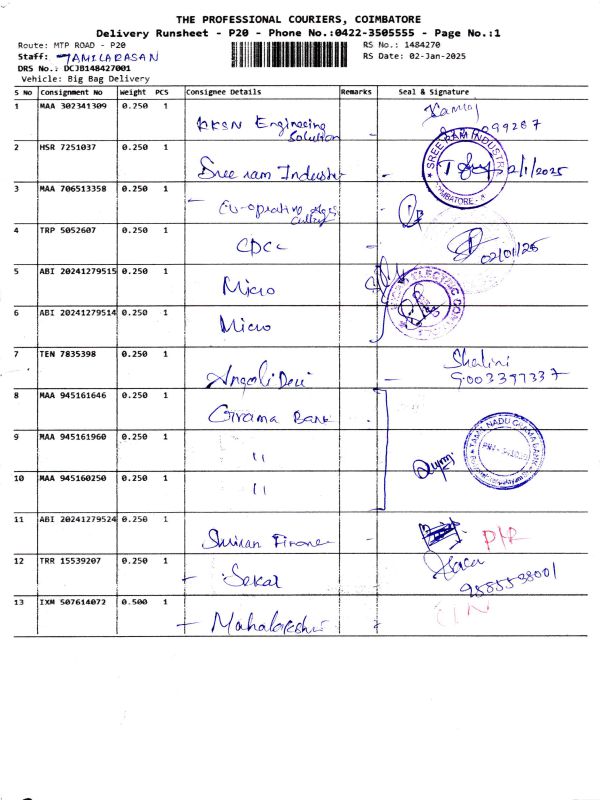 THE PROFESSIONAL COURIERS, COIMBATORE
Delivery Runsheet - P20 - Phone No.:0422-3505555 - Page No.:1
Route: MTP ROAD - P20
RS No.: 1484270
Staff: TAMILARASAN
RS Date: 02-Jan-2025
DRS No.: DCJB148427001
Vehicle: Big Bag Delivery
S No Consignment No Weight PCS Consignee Details Remarks Seal & Signature
1 MAA 302341309 0.250 1 KKSN Engineering Solution
2 HSR 7251037 0.250 1 Sree ram Industr SREE RAM INDUSTR 2/1/2025
COIMBATORE
3 MAA 706513358 0.250 1 Co-operative
4 TRP 5052607 0.250 1 CDCC 02/01/25
5 ABI 20241279515 0.250 1 Micro ELECTRIC
6 ABI 20241279514 0.250 1 Micro
7 TEN 7835398 0.250 1 Angali Devi - Shalini
9003397337
8 MAA 945161646 0.250 1 Grama Bank
9 MAA 945161960 0.250 1 " TAMIL NADU GRAMA BANK
10 MAA 945160250 0.250 1 "
11 ABI 20241279524 0.250 1
12 TRR 15539207 0.250 1 - Sekar
13 IXM 507614072 0.500 1 - Mahalakshmi